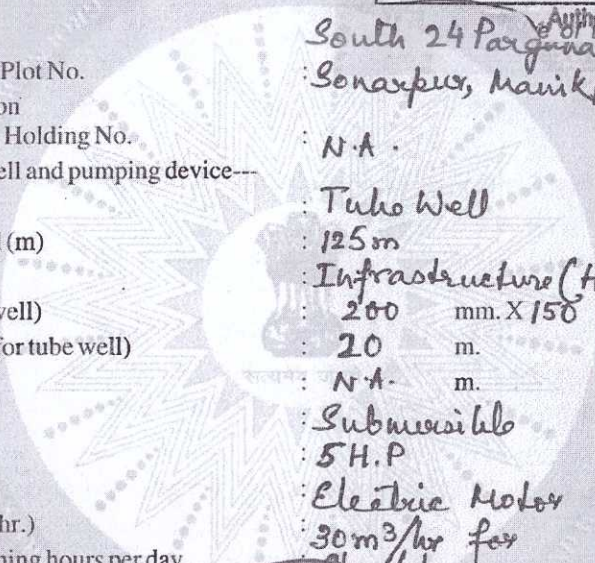 South 24 Pargana
Plot No. : Sonarpur, Manik
on
Holding No. : N.A.
ell and pumping device---
: Tube Well
(m) : 125m
: Infrastructure (H
vell) : 200 mm. X 150
for tube well) : 20 m.
: N.A. m.
: Submersible
: 5 H.P
: Electric Motor
hr.) : 30m³/hr for
ning hours per day